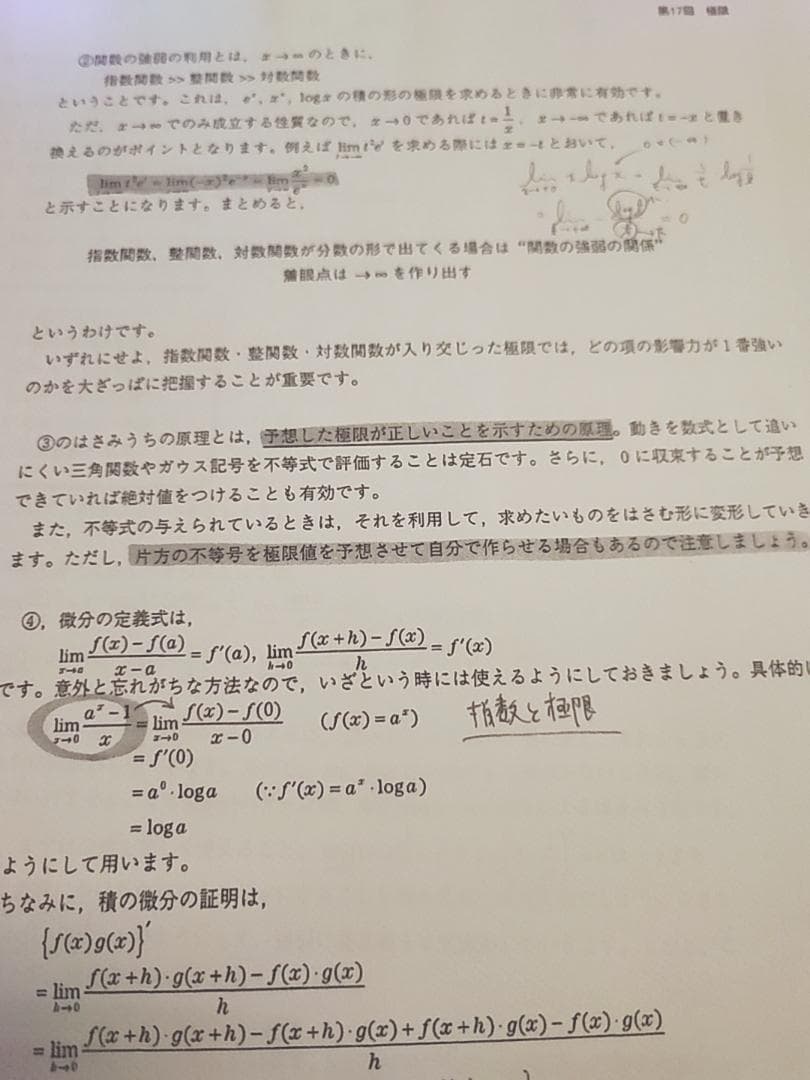 第17回 極限
②関数の強弱の利用とは，x→∞のときに，
指数関数 >> 整関数 >> 対数関数
ということです。これは，eˣ, xⁿ, log x の積の形の極限を求めるときに非常に有効です。
ただ，x→∞でのみ成立する性質なので，x→0であればt=1/x，x→-∞であればt=-xと置き
換えるのがポイントとなります。例えば lim t²eᵗ を求める際にはx=-tとおいて，
lim t²eᵗ = lim (-x)²e⁻ˣ = lim x²/eˣ = 0
と示すことになります。まとめると，
指数関数，整関数，対数関数が分数の形で出てくる場合は“関数の強弱の関係”
着眼点は →∞ を作り出す
というわけです。
いずれにせよ，指数関数・整関数・対数関数が入り交じった極限では，どの項の影響力が1番強い
のかを大ざっぱに把握することが重要です。
③のはさみうちの原理とは，予想した極限が正しいことを示すための原理。動きを数式として追い
にくい三角関数やガウス記号を不等式で評価することは定石です。さらに，0に収束することが予想
できていれば絶対値をつけることも有効です。
また，不等式の与えられているときは，それを利用して，求めたいものをはさむ形に変形していき
ます。ただし，片方の不等号を極限値を予想させて自分で作らせる場合もあるので注意しましょう。
④，微分の定義式は，
lim x→a (f(x)-f(a))/(x-a) = f′(a), lim h→0 (f(x+h)-f(x))/h = f′(x)
です。意外と忘れがちな方法なので，いざという時には使えるようにしておきましょう。具体的に
lim x→0 (aˣ-1)/x = lim x→0 (f(x)-f(0))/(x-0) (f(x)=aˣ) 指数と極限
= f′(0)
= a⁰·log a (∵f′(x)=aˣ·log a)
= log a
ようにして用います。
ちなみに，積の微分の証明は，
{f(x)g(x)}′
= lim h→0 (f(x+h)·g(x+h)-f(x)·g(x))/h
= lim h→0 (f(x+h)·g(x+h)-f(x+h)·g(x)+f(x+h)·g(x)-f(x)·g(x))/h